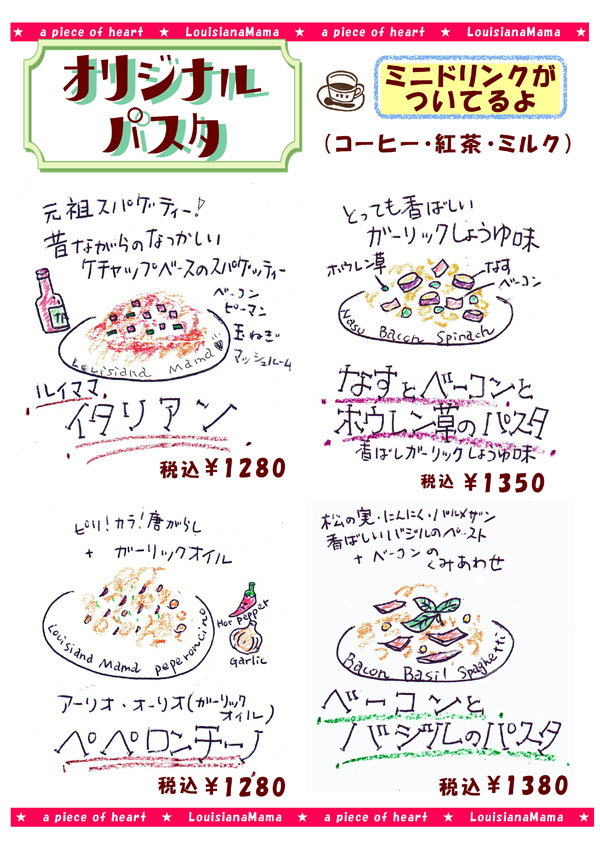 ★ a piece of heart ★ LouisianaMama ★ a piece of heart ★ LouisianaMama ★
オリジナル
パスタ
ミニドリンクが
ついてるよ
(コーヒー・紅茶・ミルク)
元祖スパゲッティー!
昔ながらのなつかしい
ケチャップベースのスパゲッティー
ベーコン
ピーマン
玉ねぎ
マッシュルーム
Louisiana Mama
ルイママ
イタリアン
税込¥1280
とっても香ばしい
ガーリックしょうゆ味
ホウレン草
なす
ベーコン
Nasu Bacon Spinach
なすとベーコンと
ホウレン草のパスタ
香ばしガーリックしょうゆ味
税込¥1350
ピリ!カラ!唐がらし
+ ガーリックオイル
Hot pepper
Garlic
Louisiana Mama peperoncino
アーリオ・オーリオ(ガーリック
オイル)
ペペロンチーノ
税込¥1280
松の実・にんにく・パルメザン
香ばしいバジルのペースト
+ ベーコンの
くみあわせ
Bacon Basil Spaghetti
ベーコンと
バジルのパスタ
税込¥1380
★ a piece of heart ★ LouisianaMama ★ a piece of heart ★ LouisianaMama ★